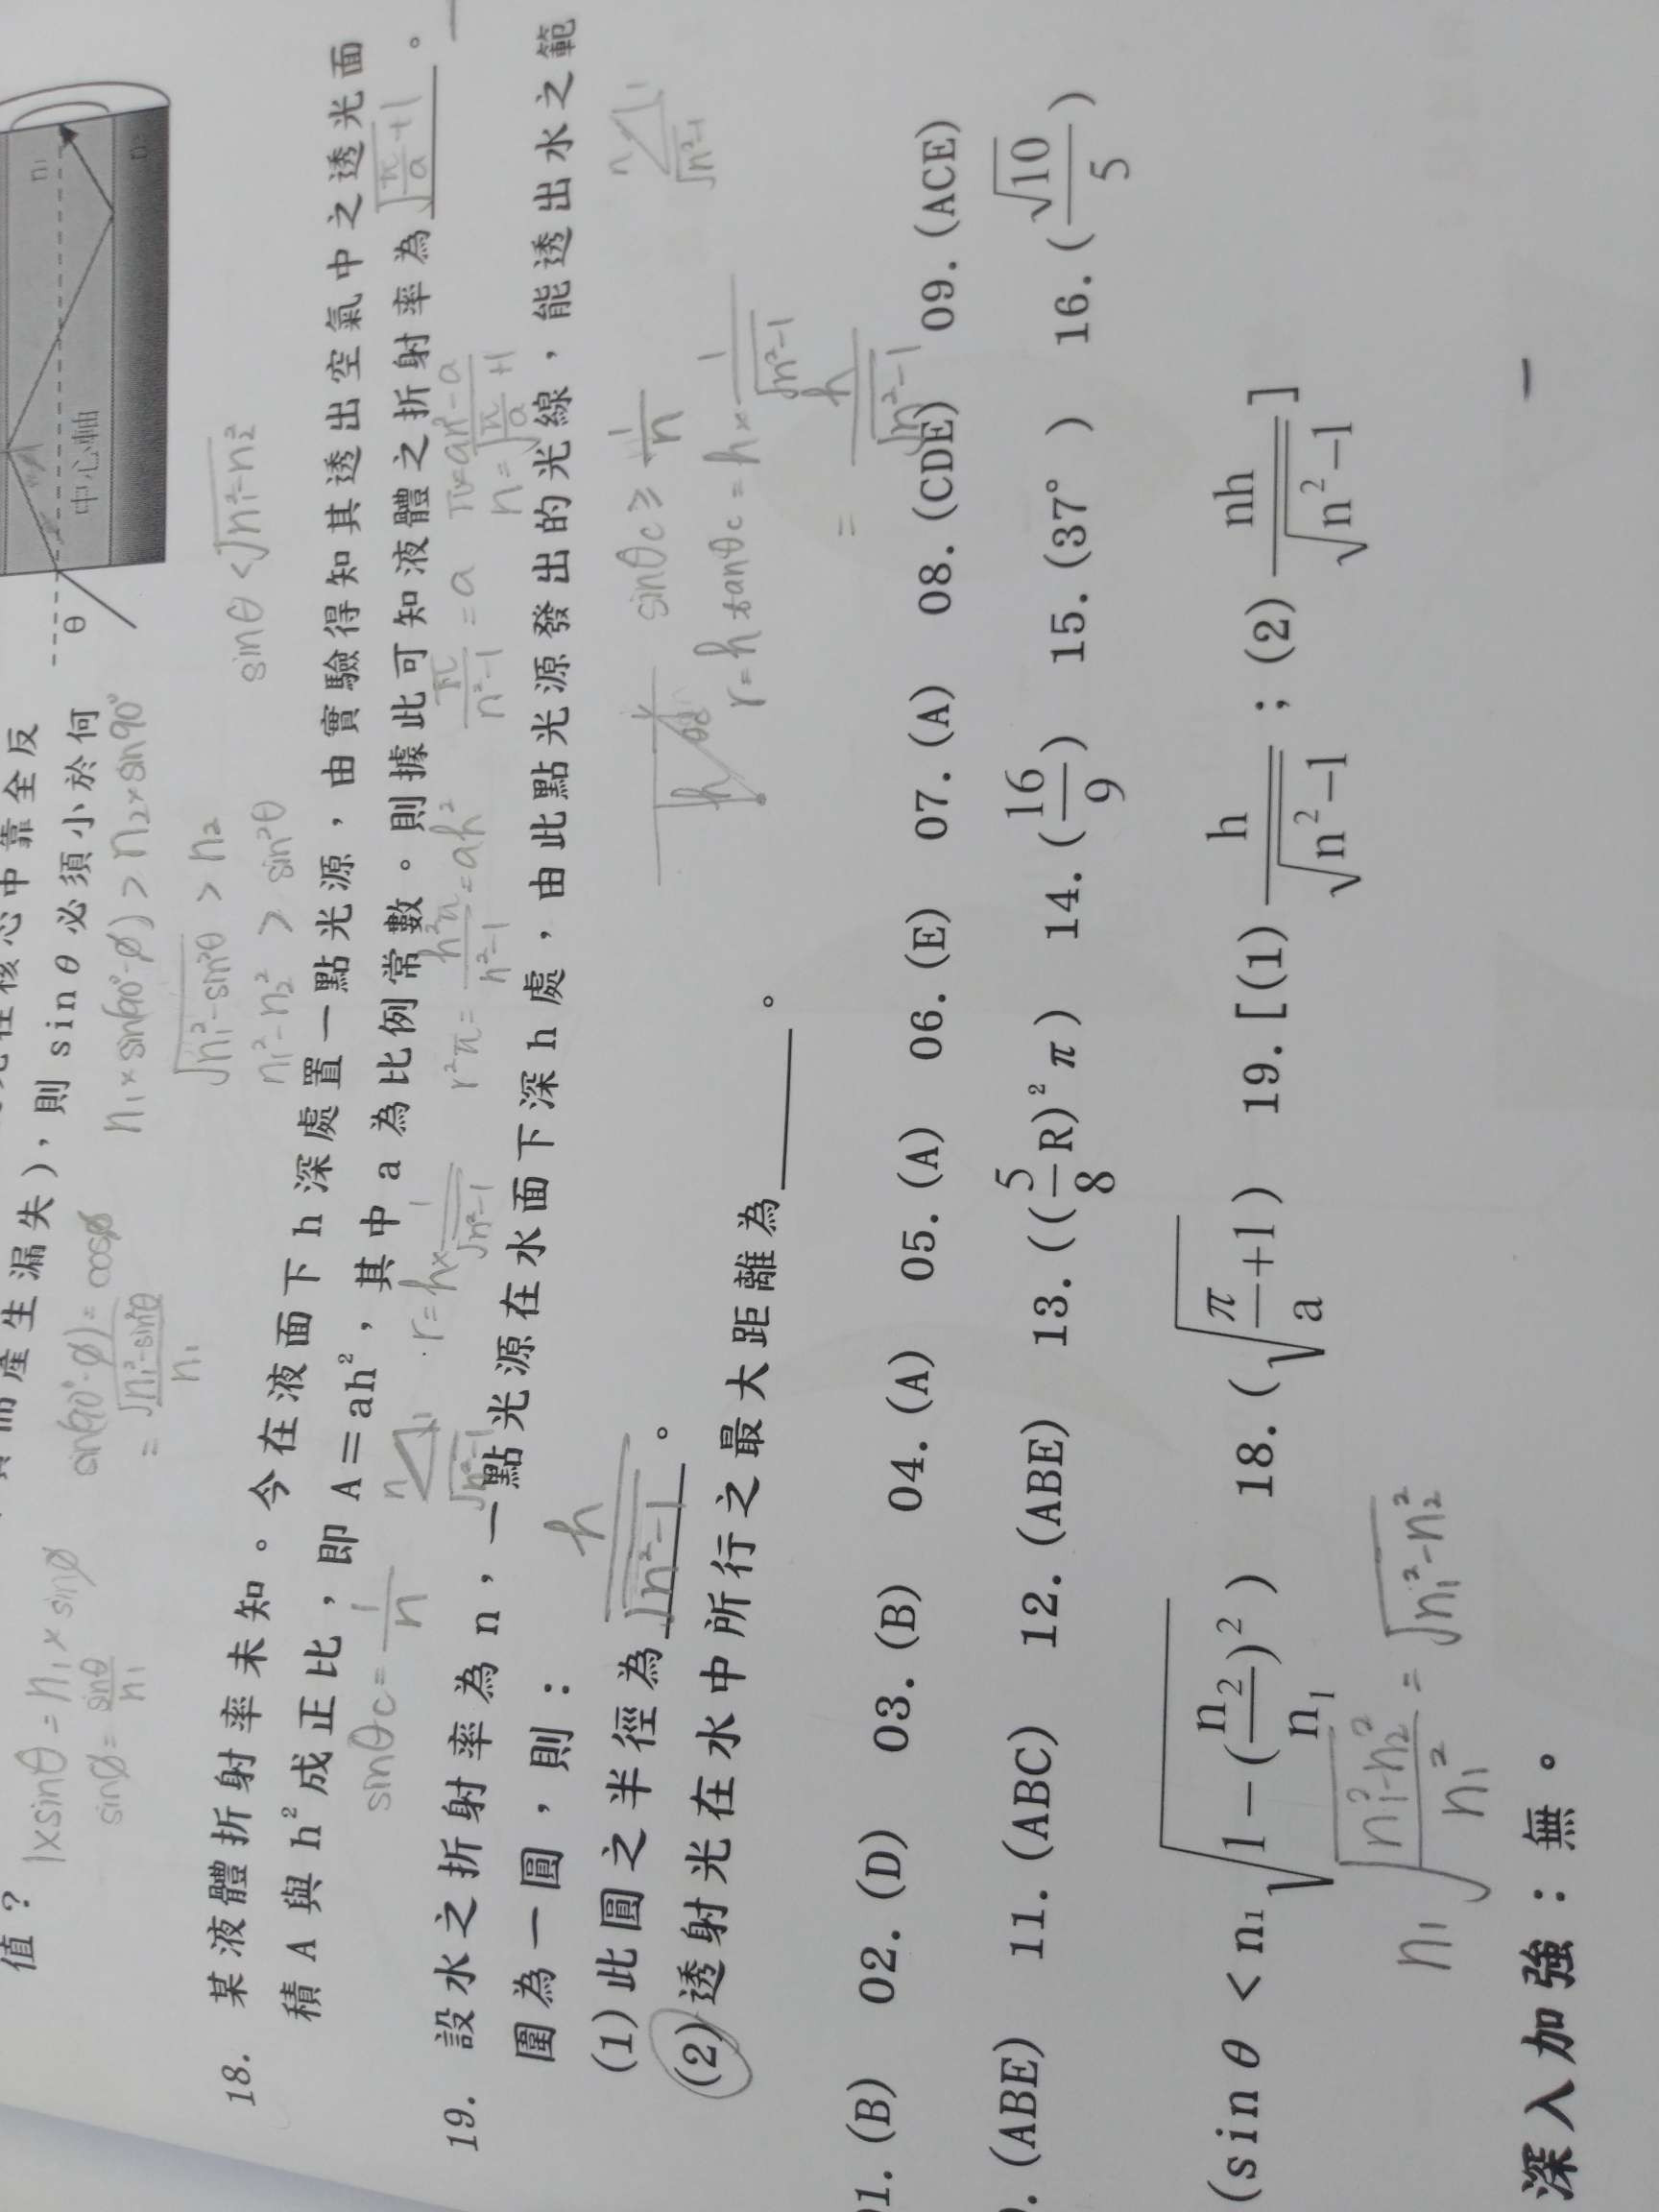 n₁
n₂
θ
中心軸
產生漏失)，則 sin θ 必須小於何
值？
1×sinθ = n₁×sinø
sinø = sinθ/n₁
sin(90°-ø) = cosø
= √(n₁²-sin²θ)/n₁
n₁×sin(90°-ø) > n₂×sin90°
√(n₁²-sin²θ) > n₂
n₁²-n₂² > sin²θ
sinθ < √(n₁²-n₂²)
18. 某液體折射率未知。今在液面下 h 深處置一點光源，由實驗得知其透出空氣中之透光面
積 A 與 h² 成正比，即 A＝ah²，其中 a 為比例常數。則據此可知液體之折射率為 √(π/a+1) 。
sinθc = 1/n
n 1 √(n²-1)
r = h× 1/√(n²-1)
r²π = h²π/(n²-1) = ah²
π/(n²-1) = a
π = an²-a
n = √(π/a+1)
19. 設水之折射率為 n，一點光源在水面下深 h 處，由此點光源發出的光線，能透出水之範
圍為一圓，則：
(1)此圓之半徑為 h/√(n²-1) 。
(2)透射光在水中所行之最大距離為＿＿＿＿。
h θc
sinθc ≥ 1/n
r = h tanθc = h× 1/√(n²-1)
= h/√(n²-1)
n 1 √(n²-1)
01. (B) 02. (D) 03. (B) 04. (A) 05. (A) 06. (E) 07. (A) 08. (CDE) 09. (ACE)
. (ABE) 11. (ABC) 12. (ABE) 13. ((5/8 R)²π) 14. (16/9) 15. (37°) 16. (√10/5)
(sin θ < n₁√(1-(n₂/n₁)²)) 18. (√(π/a+1)) 19. [(1) h/√(n²-1)；(2) nh/√(n²-1)]
n₁√((n₁²-n₂²)/n₁²) = √(n₁²-n₂²)
深入加強：無。